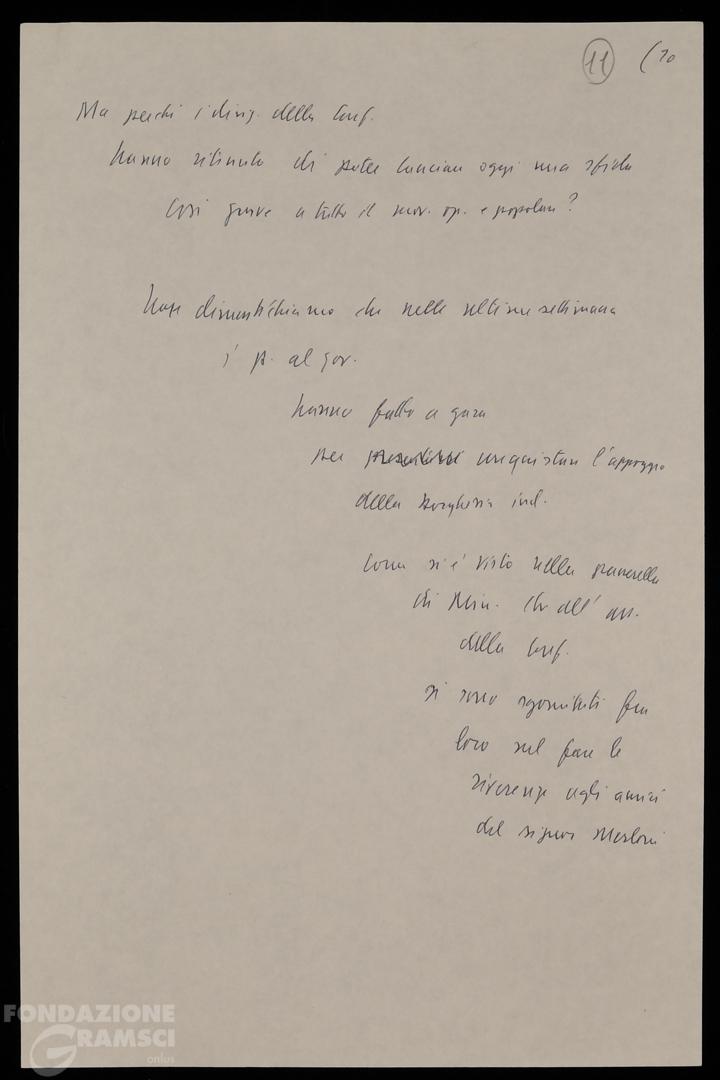 11 (10
Ma perché i dirig. della Conf.
hanno ritenuto di poter lanciare oggi una sfida
così grave a tutto il mov. op. e popolare?
Non dimentichiamo che nelle ultime settimane
i p. al gov.
hanno fatto a gara
per conquistare l'appoggio
della borghesia ind.
Come si è visto nella passerella
di Min. che all' ass.
della Conf.
si sono sgomitati fra
loro nel fare le
riverenze agli amici
del signor Merloni
FONDAZIONE
GRAMSCI
onlus